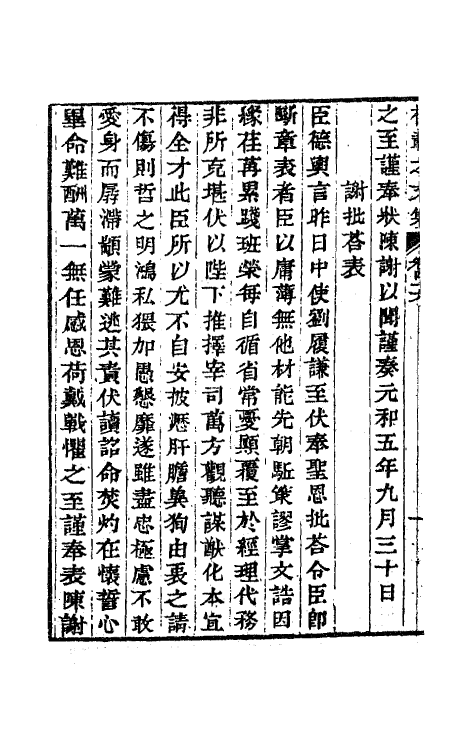 之至謹奉狀陳謝以聞謹奏元和五年九月三十日
謝批荅表
臣德輿言昨日中使劉履謙至伏奉聖恩批荅令臣卽
斷章表者臣以庸薄無他材能先朝駈策謬掌文誥因
緣荏苒累踐班榮每自循省常憂顚覆至於經理代務
非所克堪伏以陛下推擇宰司萬方觀聽謀猷化本宜
得全才此臣所以尤不自安披瀝肝膽兾狥由衷之請
不傷則哲之明鴻私猥加愚懇靡遂雖盡忠極慮不敢
愛身而孱滯顓蒙難逃其責伏讀詔命焚灼在懷誓心
畢命難酬萬一無任感恩荷戴戰懼之至謹奉表陳謝